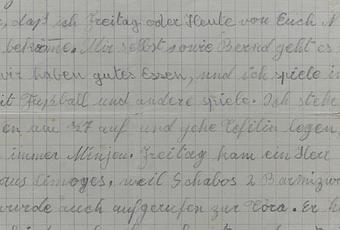 , daß ich Freitag oder Heute von Euch N
bekäme. Mir selbst sowie Bernd geht es
wir haben gutes Essen, und ich spiele in
it Fußball und andere spiele. Ich stehe
en um 37 auf und gehe Tefilin legen,
immer Minjou. Freitag kam ein Herr
aus Limoges, weil Schabos 2 Barmizw
wurde auch aufgerufen zur Tora. Er h